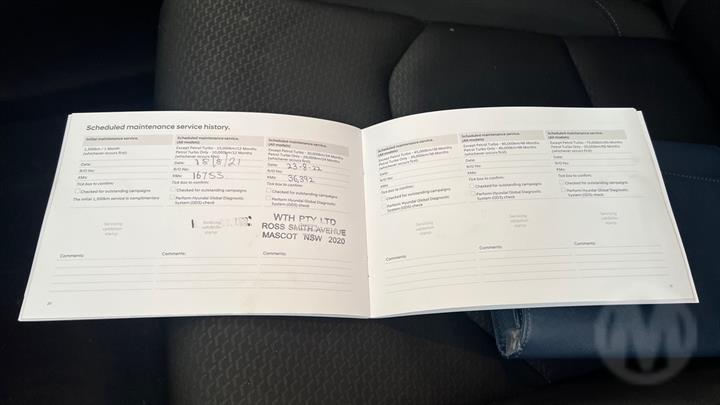 Scheduled maintenance service history.
Initial maintenance service.
1,500km / 1 Month
(whichever occurs first)
Date:
R/O No:
KMs:
Tick box to confirm:
Checked for outstanding campaigns
The initial 1,500km service is complimentary
Servicing
validation
stamp
Comments:
20
Scheduled maintenance service.
(All models)
Except Petrol Turbo - 15,000km/12 Months
Petrol Turbo Only - 10,000km/12 Months
(whichever occurs first)
Date: 18/8/21
R/O No:
KMs: 16755
Tick box to confirm:
Checked for outstanding campaigns
Perform Hyundai Global Diagnostic
System (GDS) check
Comments:
Scheduled maintenance service.
(All models)
Except Petrol Turbo - 30,000km/24 Months
Petrol Turbo Only - 20,000km/24 Months
(whichever occurs first)
Date: 23-8-22
R/O No:
KMs: 36,392
Tick box to confirm:
Checked for outstanding campaigns
Perform Hyundai Global Diagnostic
System (GDS) check
WTH PTY LTD
ROSS SMITH AVENUE
MASCOT NSW 2020
Comments:
Scheduled maintenance service.
(All models)
Except Petrol Turbo - 45,000km/36 Months
Petrol Turbo Only - 30,000km/36 Months
(whichever occurs first)
Date:
R/O No:
KMs:
Tick box to confirm:
Checked for outstanding campaigns
Perform Hyundai Global Diagnostic
System (GDS) check
Servicing
validation
stamp
Comments:
Scheduled maintenance service.
(All models)
Except Petrol Turbo - 60,000km/48 Months
Petrol Turbo Only - 40,000km/48 Months
(whichever occurs first)
Date:
R/O No:
KMs:
Tick box to confirm:
Checked for outstanding campaigns
Perform Hyundai Global Diagnostic
System (GDS) check
Servicing
validation
stamp
Comments:
Scheduled maintenance service.
(All models)
Date:
R/O No:
KMs:
Tick box to confirm:
Checked for outstanding campaigns
Perform Hyundai Global Diagnostic
System (GDS) check
Servicing
validation
stamp
Comments:
M